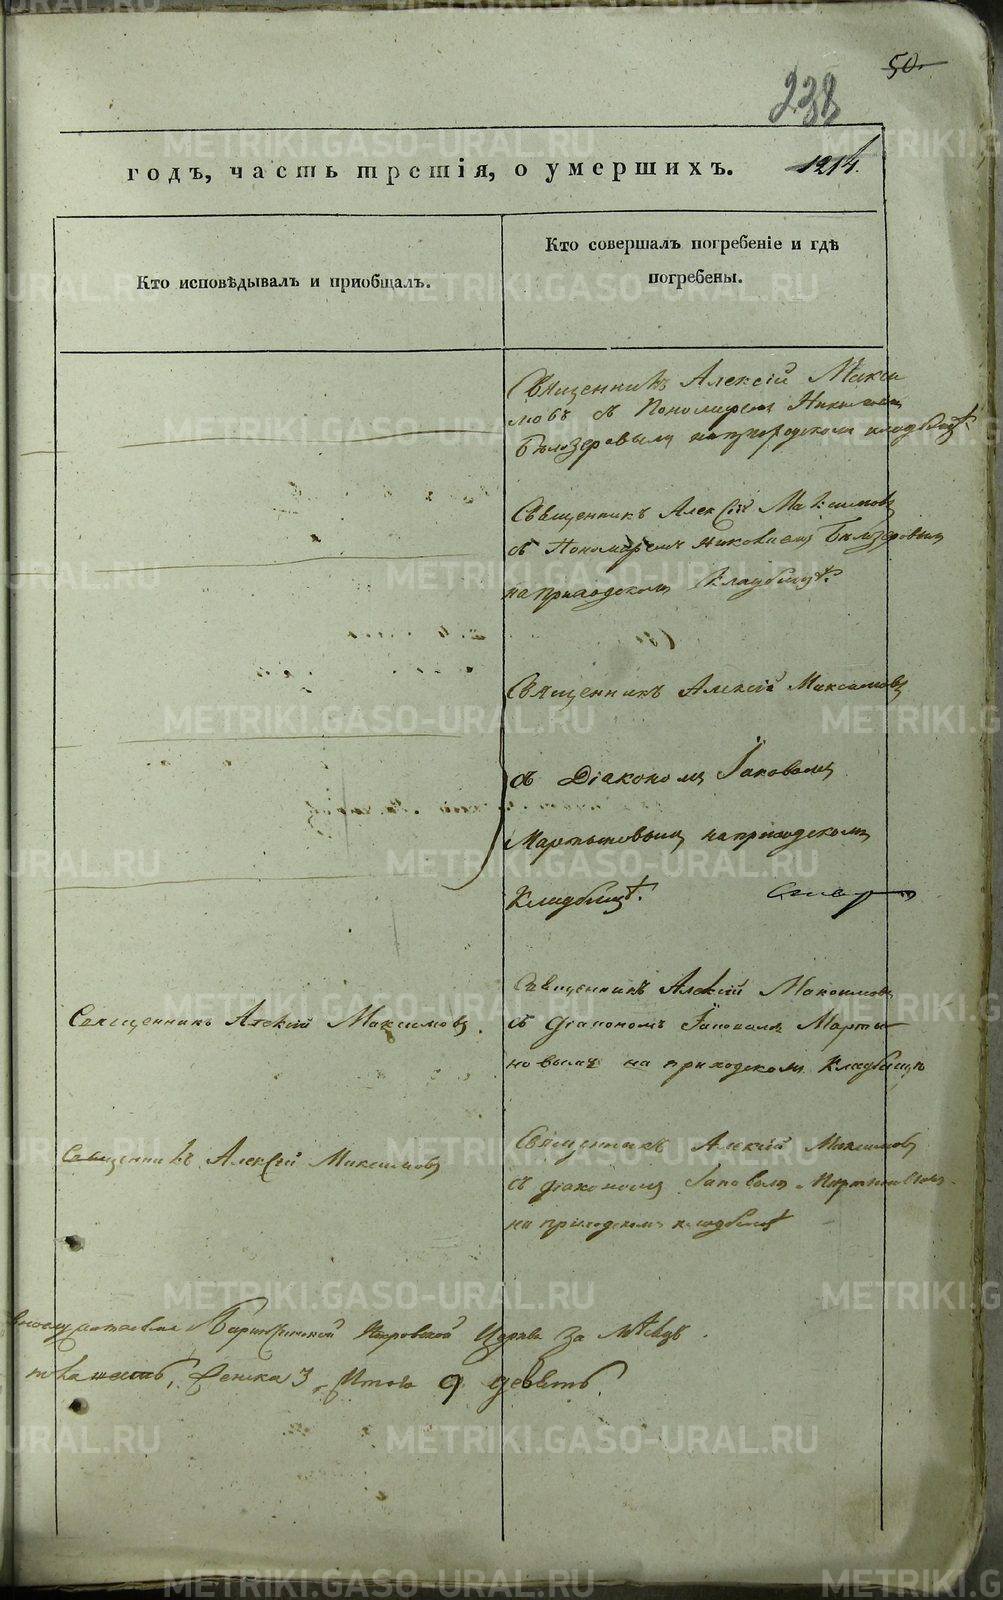 50.
238
годъ, часть третія, о умершихъ.
1214.
Кто исповѣдывалъ и пріобщалъ.
Кто совершалъ погребеніе и гдѣ
погребены.
Священникъ Алексій Макси
мовъ съ Пономаремъ Николаемъ
Бѣлозеровымъ на приходскомъ кладбищѣ.
Священникъ Алексій Максимовъ
съ Пономаремъ Николаемъ Бѣлозеровымъ
на приходскомъ кладбищѣ.
Священникъ Алексій Максимовъ
съ Діакономъ Іаковомъ
Мартыновымъ на приходскомъ
Кладбищѣ.
Священникъ Алексій Максимовъ
съ діакономъ Іаковомъ Марты
новымъ на приходскомъ Кладбищѣ
Священникъ Алексій Максимовъ.
Священникъ Алексій Максимовъ
съ діакономъ Іаковомъ Мартыновымъ
на приходскомъ кладбищѣ
Священникъ Алексій Максимовъ
Петровской Церкви за Мѣсяцъ
Женска 3, Итого 9 девять.
METRIKI.GASO-URAL.RU